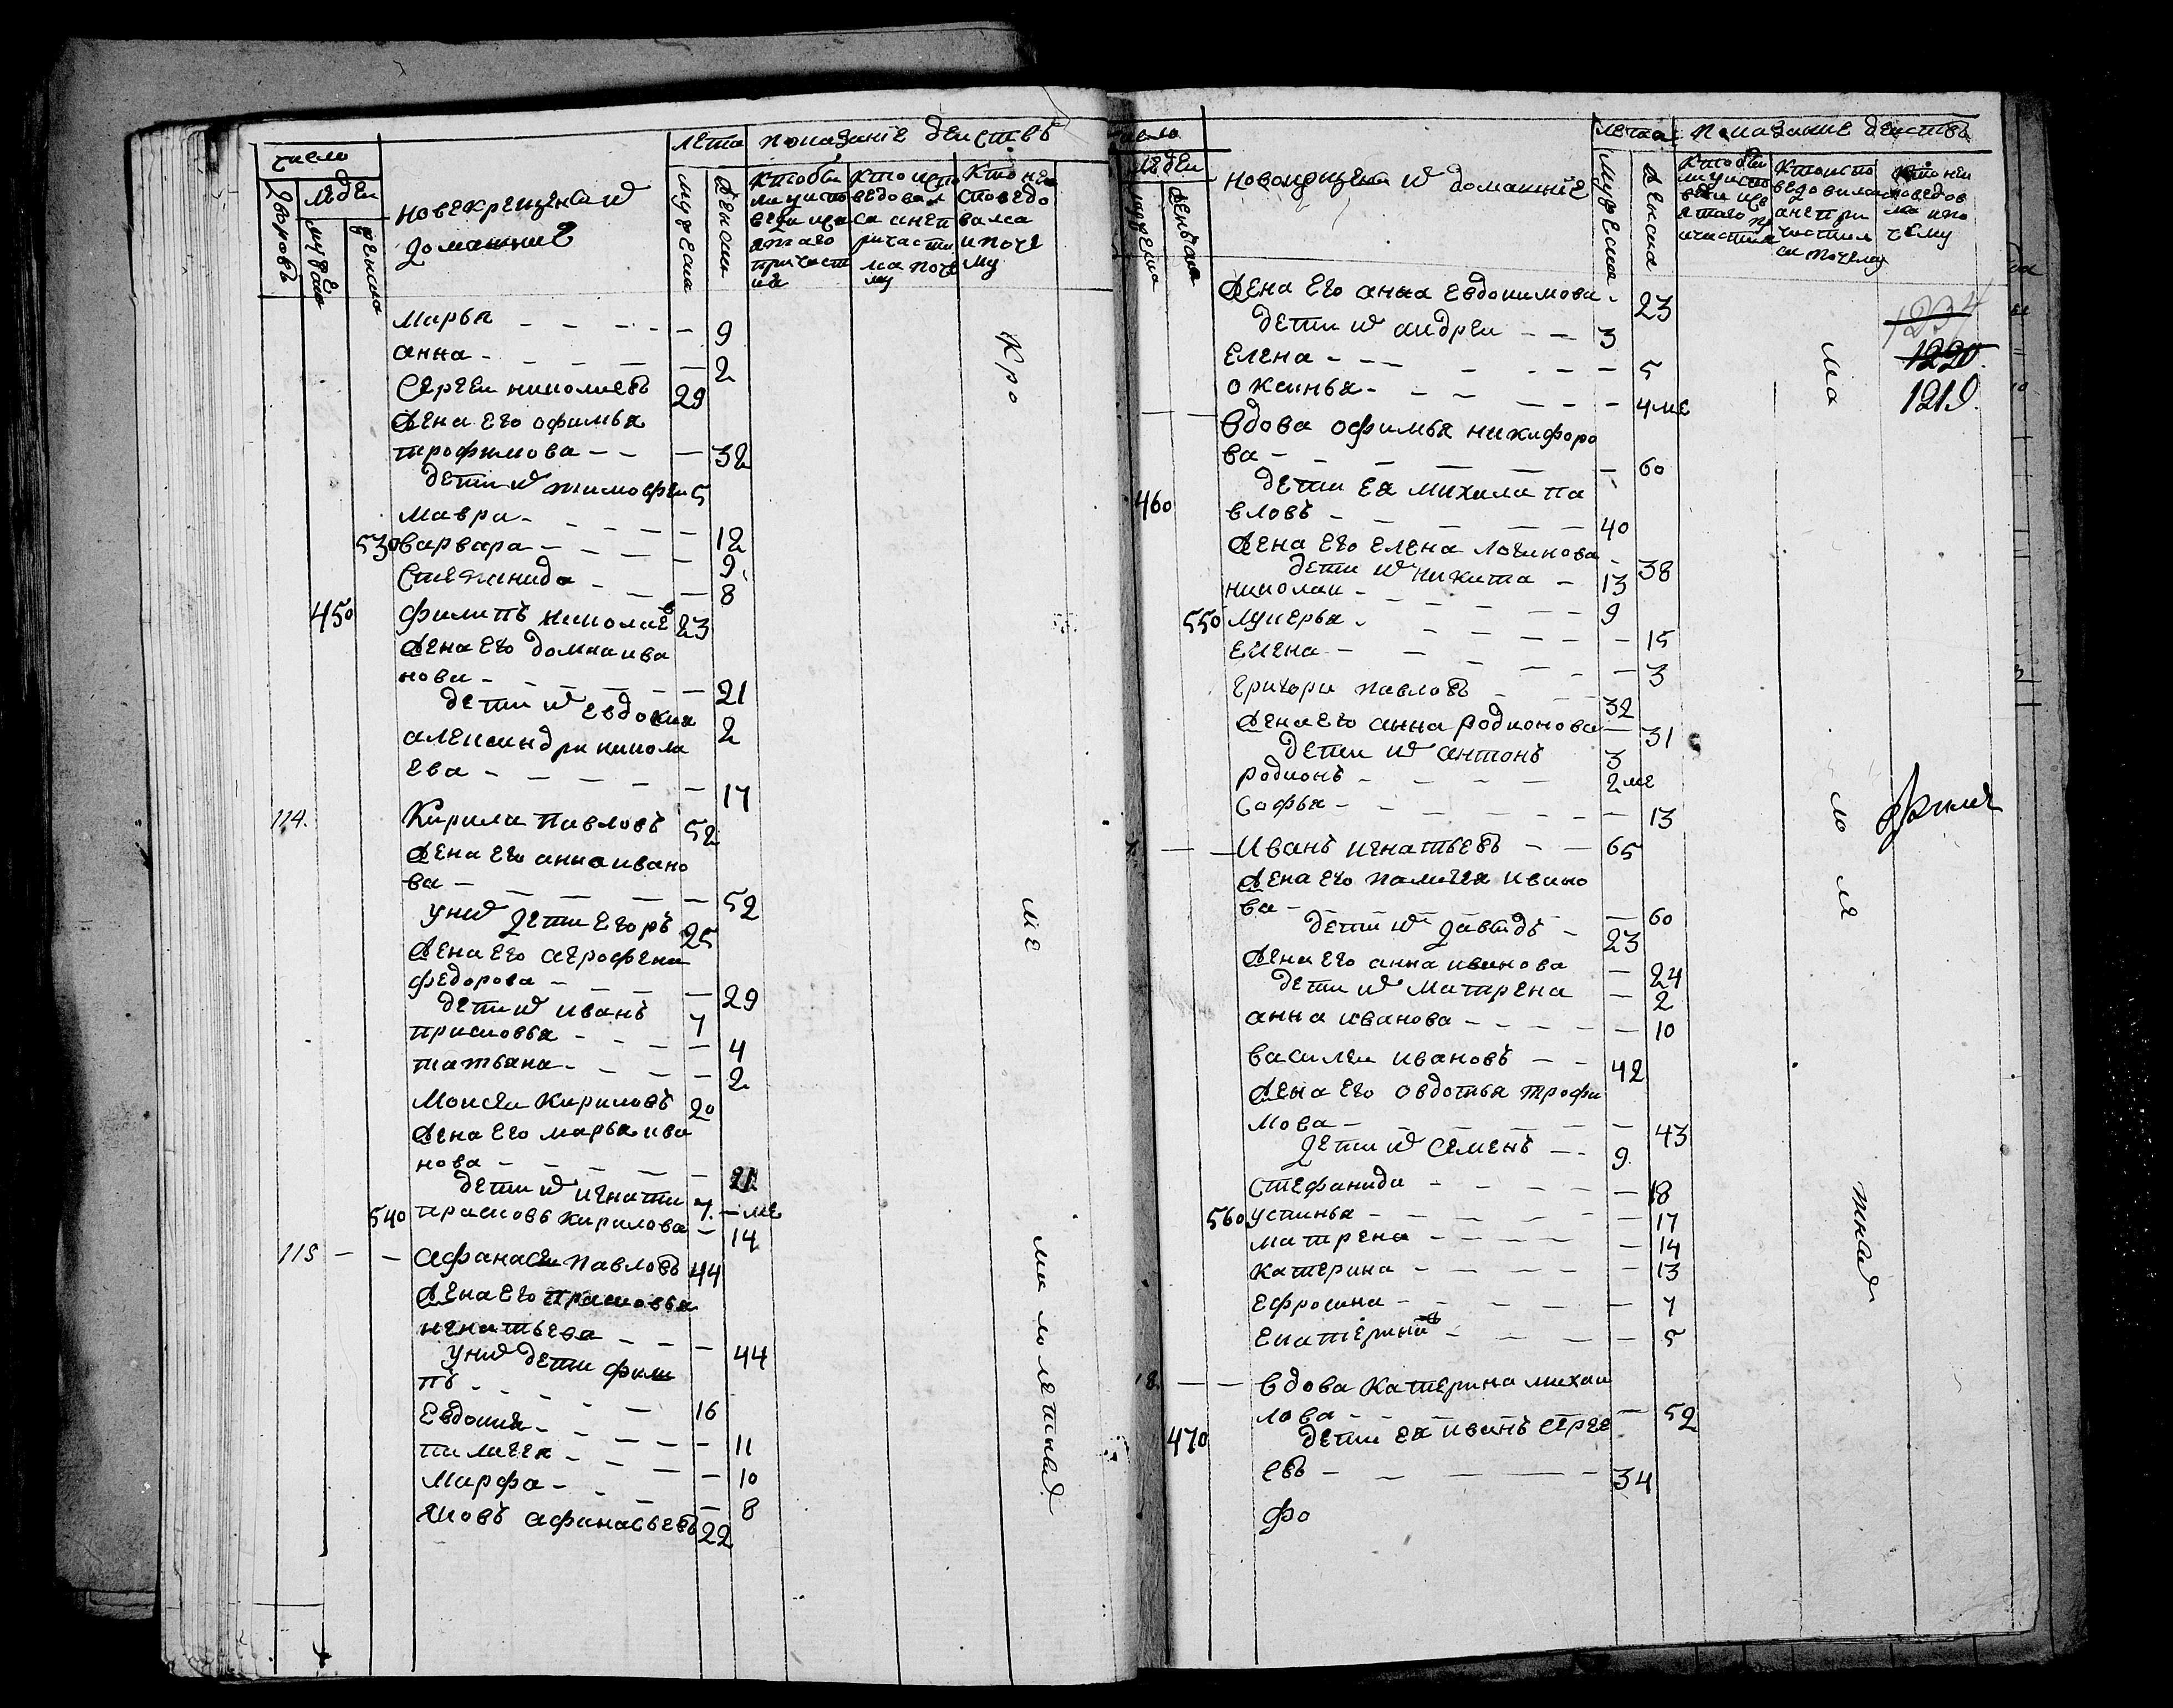 число
людеи
дворовъ
мужеска
женска
новокрещены и
домашние
лета
мужеска
женска
показание деиствъ
кто были
у испо
веди и
св
таго
причаст
иа
кто испо
ведовал
са а не п
ричасти
ла поче
му
кто не и
споведо
валса
и поче
му
марья - - - - - 9
анна - - - - - 2
Сергеи николаевъ 29
жена его офимья
трофимова - - - 32
дети их тимофеи 5
мавра - - - - - 12
530 варвара - - - - 9
Степанида - - - 8
450 филипъ николаевъ 23
жена его домна ива
нова - - - - - 21
дети их евдокия 2
александра никола
ева - - - - - 17
114. Кирила Павловъ 52
жена его анна ивано
ва - - - - - 52
у них дети Егоръ 25
жена его агрофена
федорова - - - - 29
дети их иванъ 7
прасковья - - - - 4
татьяна - - - - 2
Моисеи Кириловъ 20
жена его марья ива
нова - - - - - 21
дети их игнати 7 - ме
540 прасковь кирилова - 14
115 - - афанасеи павловъ 44
жена его прасковья
игнатьева - - - 44
у них дети фили
пъ - - - - 16
Евдокия - - - - - 11
палагея - - - - 10
марфа - - - - 8
яковъ афанасьевъ 22
Кро
ме
ма ло ле тных
число
людеи
мужеска
женска
новокрещены их домашние
лета
мужеска
женска
показание деиствъ
кто были
у испо
веди и св
етаго пр
ичастия
кто испо
ведовалса
а не при
частил
са почему
кто не и
споведов
ла и по
чему
жена его анна евдокимова - 23
дети их андреи - - 3
Елена - - - - - - 5
оксинья - - - - - - 4 ме
- - Вдова офимья никифоро
ва - - - - - - 60
460 дети ея михаила па
вловъ - - - - - 40
жена его Елена логинова - 38
дети их никита - 13
николаи - - - - - 9
550 лукерья - - - - - - 15
Елена - - - - - - 3
григори павловъ - - 32
жена его анна родионова - 31
дети их антонъ 3
родионъ - - - - 2 ме
Софья - - - - - - 13
- - Иванъ игнатьевъ - - 65
жена его палагея ивано
ва - - - - - - 60
дети их давыдъ - 23
жена его анна иванова - 24
дети их матрена - 2
анна иванова - - - - - 10
василеи ивановъ - - 42
жена его овдотья трофи
мова - - - - - - 43
дети их семенъ - - 9
стефанида - - - - - 18
560 устинья - - - - - - 17
матрена - - - - - 14
катерина - - - - - 13
ефросина - - - - - 7
екатерина - - - - 5
18. - - вдова катерина михаи
лова - - - - - 52
470 дети ея иванъ серге
евъ - - - - - 34
фо
1220
1219.
ма
ло
ле
тных